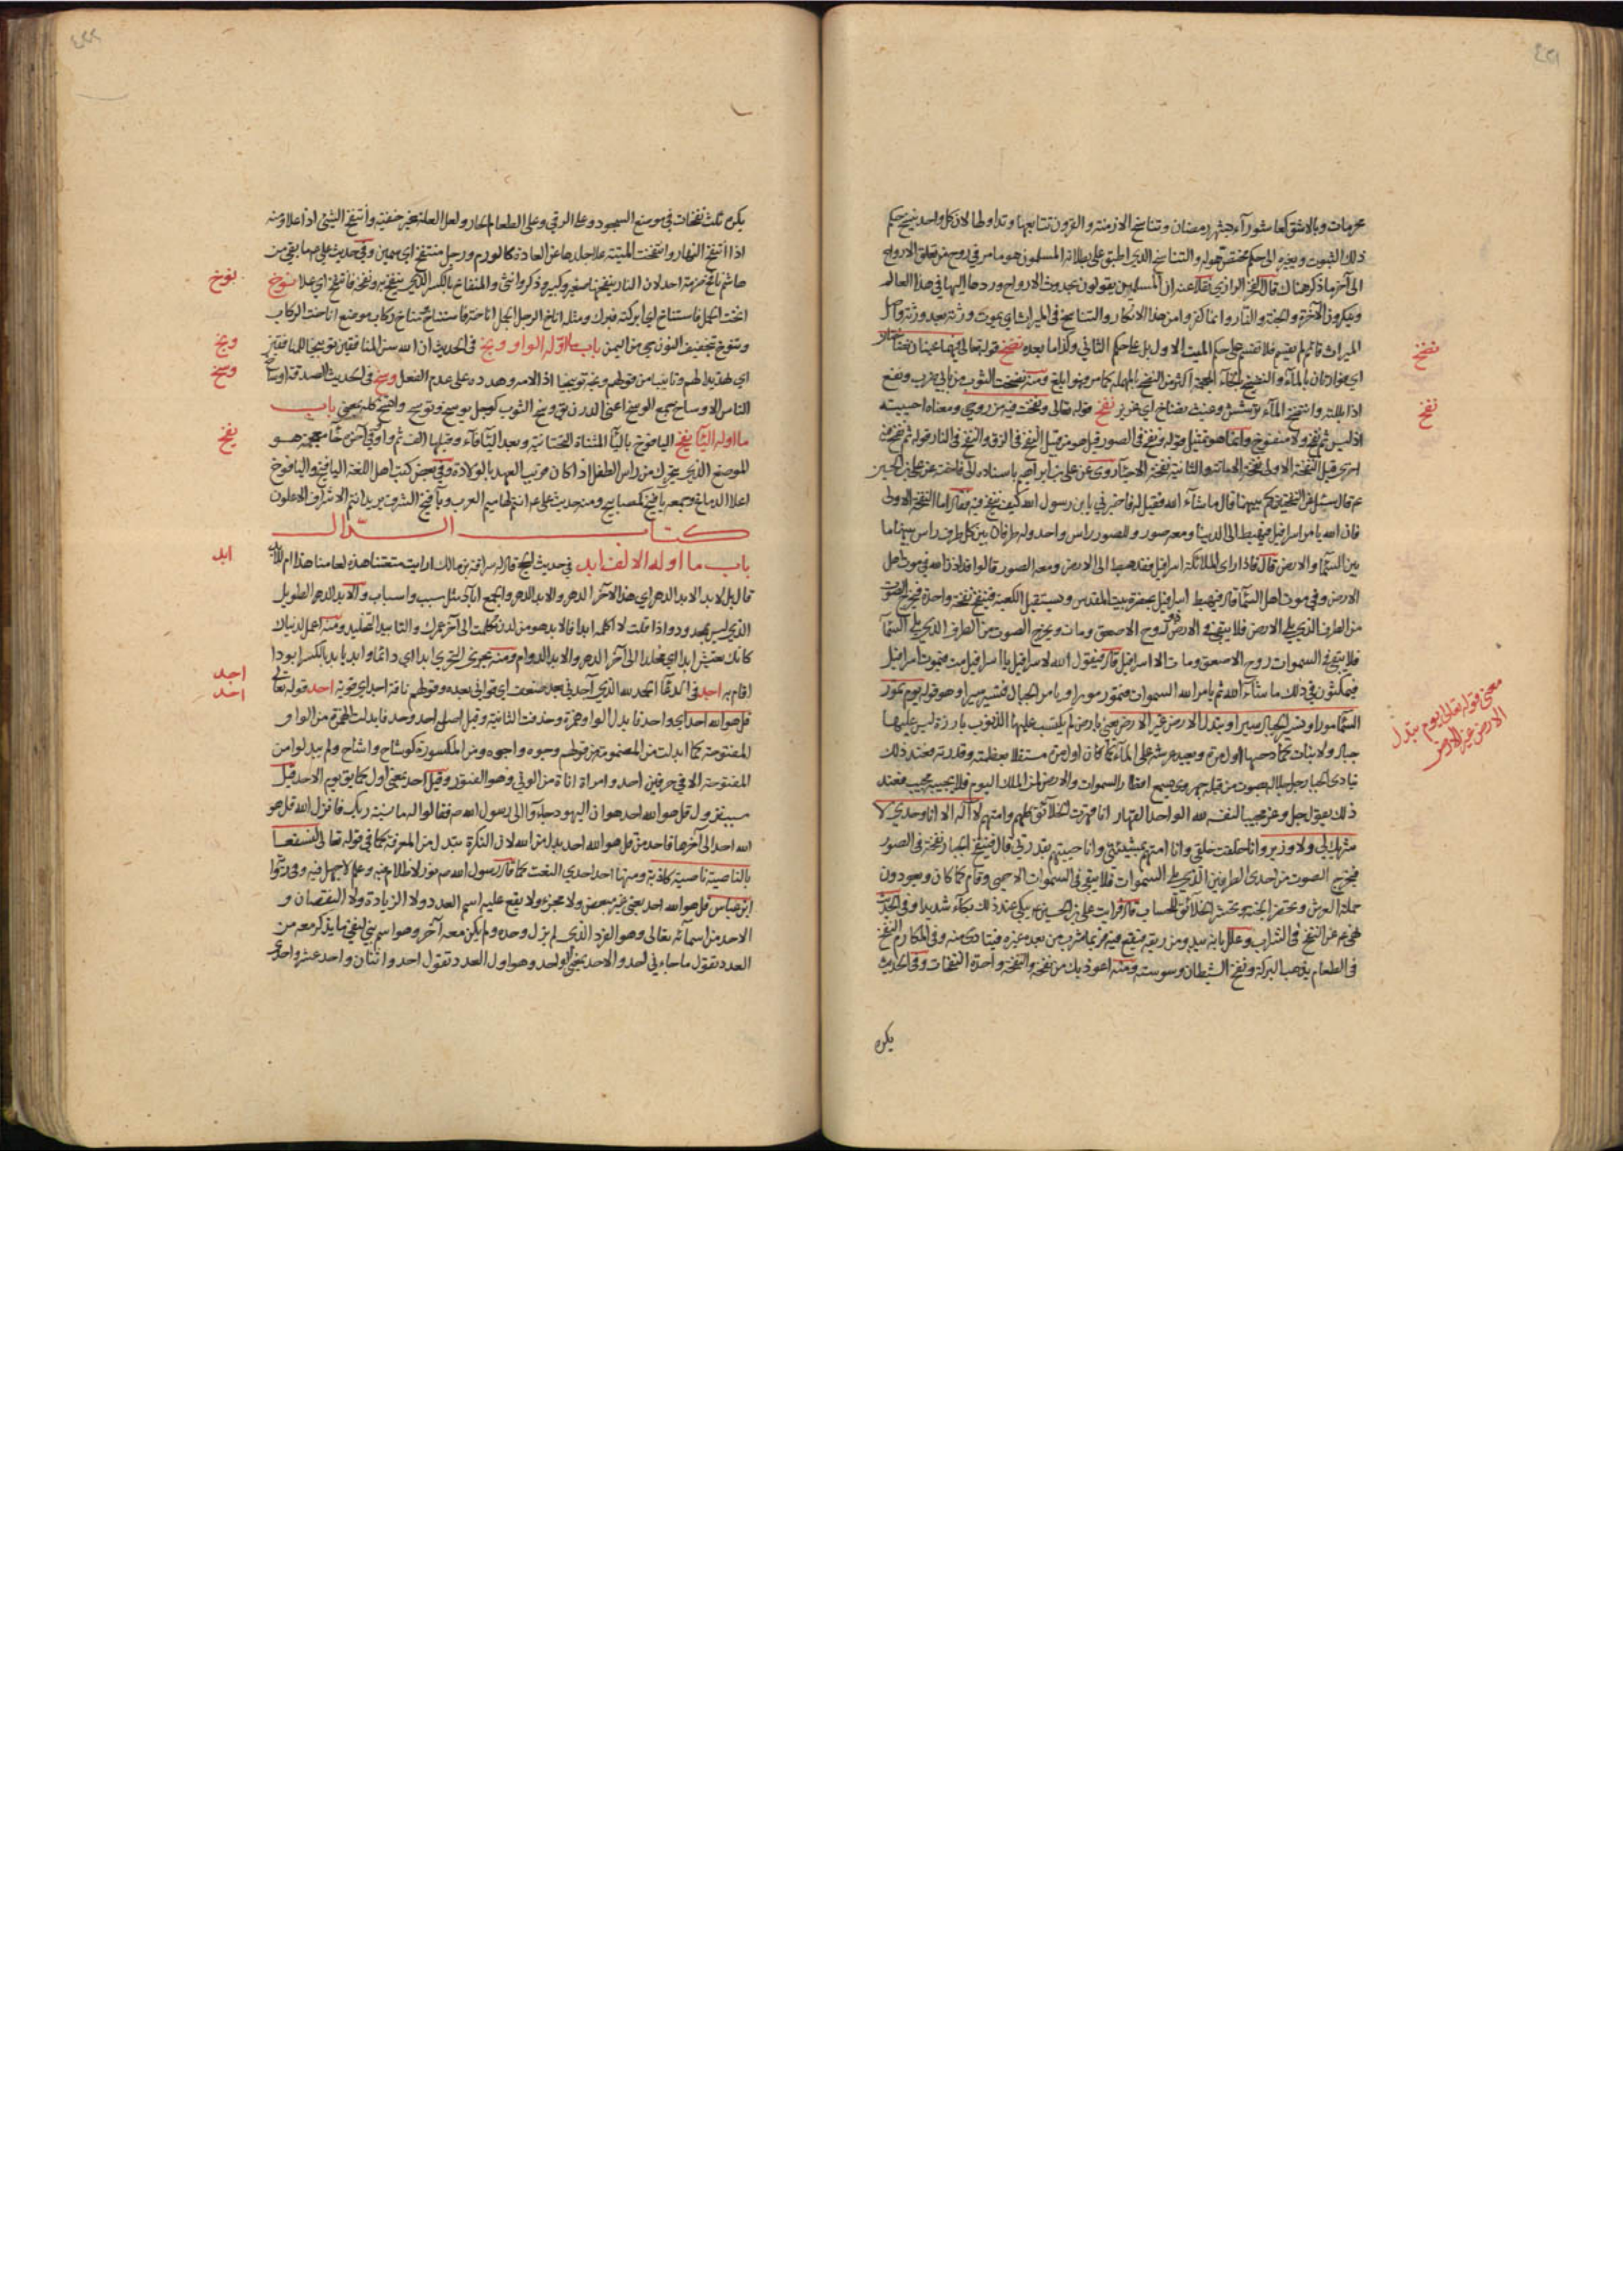 ٤٢١
محرمات وبالاشق كعاشوراء بشهر رمضان وتناسخ الازمنة والقرون تتابعها وتداولها لان كل واحد ينسخ حكم
ذلك الثبوت ويغيره الى حكم يختص هو له والتناسخ الذي اطبق على بطلانه المسلمون هو ما مر في روح من تعلق الارواح
الى آخر ما ذكر هناك قال الفخر الرازي نقلا عنه ان المسلمين يقولون بحدوث الارواح وردها اليها في هذا العالم
وينكرون الآخرة والجنة والنار وانما كفروا من هذا الانكار والتناسخ في الميراث ان يموت ورثة بعد ورثة واصل
الميراث قائم لم يقسم فلا تقسم على حكم الميت الاول بل على حكم الثاني وكذا ما بعده نضخ قوله تعالى فيهما عينان نضاختان
اي فوارتان بالماء والنضخ بالخاء المعجمة اكثر من النضح بالمهملة كما مر فهو ابلغ ومنه نضخت الثوب من بابي ضرب ونفع
اذا بللته وانتضخ الماء ترشش وغيث نضاخ اي غزير نفخ قوله تعالى ونفخت فيه من روحي ومعناه احييته
اذ ليس ثم نفخ ولا منفوخ وانما هو تمثيل قوله ونفخ في الصور قيل هو من قبيل النفخ في الزق والنفخ في النار قوله ثم نفخ فيه
اخرى قيل النفخة الاولى نفخة الاماتة والثانية نفخة الاحياء روى عن علي بن ابراهيم باسناده الى فاختة عن علي بن الحسين
ع م قال سئل عن النفختين كم بينهما قال ما شاء الله فقيل له فاخبرني يا بن رسول الله كيف ينفخ فيه فقال اما النفخة الاولى
فان الله يامر اسرافيل فيهبط الى الدنيا ومعه صور وللصور راس واحد وله طرفان بين كل طرف راس بينهما ما
بين السماء والارض قال فاذا راى الملائكة اسرافيل فقد هبط الى الارض ومعه الصور قالوا قد اذن الله في موت اهل
الارض وفي موت اهل السماء قال فيهبط اسرافيل بحضرة بيت المقدس ويستقبل الكعبة فينفخ نفخة واحدة فيخرج الصوت
من الطرف الذي يلي الارض فلا يبقى في الارض ذو روح الا صعق ومات ويخرج الصوت من الطرف الذي يلي السماء
فلا يبقى في السموات روح الا صعق ومات الا اسرافيل قال فيقول الله لاسرافيل يا اسرافيل مت فيموت اسرافيل
فيمكثون في ذلك ما شاء الله ثم يامر الله السموات فتمور مورا ويامر الجبال فتسير سيرا وهو قوله يوم تمور
السماء مورا وتسير الجبال سيرا وتبدل الارض غير الارض يعني بارض لم يكتسب عليها الذنوب بارزة ليس عليها
جبال ولا نبات كما دحيها اول مرة ويعيد عرشه على الماء كما كان اول مرة مستقلا بعظمته وقدرته فعند ذلك
ينادي الجبار جل جلاله بصوت من قبله جهوري يسمع اقطار السموات والارض لمن الملك اليوم فلا يجيبه مجيب فعند
ذلك يقول جل وعز مجيبا لنفسه لله الواحد القهار انا قهرت الخلائق كلهم وامتهم لا اله الا انا وحدي لا
شريك لي ولا وزير وانا خلقت خلقي وانا امتهم بمشيئتي وانا احييتهم بقدرتي قال فينفخ الجبار نفخة في الصور
فيخرج الصوت من احدى الطرفين الذي يلي السموات فلا يبقى في السموات الا حيي وقام كما كان ويعودون
حملة العرش وتحضر الجنة وتحشر الخلائق للحساب قال فرايت علي بن الحسين ع م يبكي عند ذلك بكاء شديدا وفي الحديث
نهى ع م عن النفخ في الشراب وعلل بانه يبدر من ريقه فيقع فيه فربما شرب من بعده غيره فيتاذى منه وفي المكارم النفخ
في الطعام يذهب البركة ونفخ الشيطان وسوسته ومنه اعوذ بك من نفخه والنفخة واحدة النفخات وفي الحديث
يكره
نضخ
نفخ
معنى قوله تعالى يوم تبدل
الارض غير الارض
٤٢٢
يكره ثلث نفخات في موضع السجود وعلى الرقي وعلى الطعام الحار ولعل العلة غير خفية وانتفخ الشيء اذا علا ومنه
اذا انتفخ النهار وانتفخت الميتة علا جلدها عن العادة كالورم ورجل منتفخ اي سمين وفي حديث علي ع م ما بقي من
هاشم نافخ ضرمة احد لان النار ينفخها صغير وكبير وذكر وانثى والمنفاخ بالكسر الذي ينفخ به ونفخه فانتفخ اي علا نوخ
انخت الجمل فاستناخ اي ابركته فبرك ومثله اناخ الرجل الجمل اناخة فاستناخ ومناخ ركاب موضع اناخت الركاب
وتنوخ بتخفيف النون حي من اليمن باب ما اوله الواو وبخ في الحديث ان الله سن المنافقين توبيخا للمنافقين
اي تهديدا لهم وتانيبا من قولهم وبخه توبيخا اذا لامه وهدده على عدم الفعل وسخ في الحديث الصدقة اوساخ
الناس الاوساخ جمع الوسخ اعني الدرن يق وسخ الثوب كوجل يوسخ وتوسخ واتسخ كله بمعنى باب
ما اوله الياء يفخ اليافوخ بالياء المثناة التحتانية وبعد الياء فاء وقبلها الف ثم واو وفي آخره خاء معجمة هو
الموضع الذي يتحرك من راس الطفل اذا كان قريب العهد بالولادة وفي بعض كتب اهل اللغة اليافخ واليافوخ
اعلا الدماغ وجمعه يافيخ كمصابيح ومنه حديث علي ع م انتم لهاميم العرب ويآفيخ الشرف يريد انتم الاشراف الاعلون
كتاب الدال
باب ما اوله الالف ابد في حديث الحج قال له سراقة بن مالك ارايت متعتنا هذه لعامنا هذا ام للابد
قال بل لابد الابد الدهر اي هذا لآخر الدهر والابد الدهر والجمع اباد مثل سبب واسباب والابد الدهر الطويل
الذي ليس بمحدود واذا قلت لا اكلمه ابدا فالابد هو من لدن تكلمت الى آخر عمرك والتابيد التخليد ومنه اعمل لدنياك
كانك تعيش ابدا اي مخلدا الى آخر الدهر والابد الدوام ومنه يجزي التحري ابدا اي دائما وابد يابد بالكسر ابودا
اقام به اجد في الدعاء الحمد لله الذي آجدني بعد ضعف اي قواني بعده وقولهم ناقة اجد اي قوية احد قوله تعالى
قل هو الله احد اي واحد فابدل الواو همزة وحذفت الثانية وقيل اصل احد وحد فابدلت الهمزة من الواو
المفتوحة كما ابدلت من المضمومة من قولهم وجوه واجوه ومن المكسورة كوشاح واشاح ولم يبدلوا من
المفتوحة الا في حرفين احد وامراة اناة من الوني وهو الفتور وقيل احد بمعنى اول كما يق يوم الاحد قيل
سبب نزول قل هو الله احد هو ان اليهود جاءوا الى رسول الله ص م فقالوا له ما نسبة ربك فانزل الله قل هو
الله احد الى آخرها فاحد من قل هو الله احد بدل من الله لان النكرة تبدل من المعرفة كما في قوله تعالى لنسفعا
بالناصية ناصية كاذبة ومنها احد احدي النعت كما قال رسول الله ص م نور لا ظلام فيه وعلم لا جهل فيه وفي رواية
ابن عباس قل هو الله احد يعني غير مبعض ولا مجزء ولا يقع عليه اسم العدد ولا الزيادة ولا النقصان و
الاحد من اسمائه تعالى وهو الفرد الذي لم يزل وحده ولم يكن معه آخر وهو اسم بني لنفي ما يذكر معه من
العدد تقول ما جاءني احد والاحد بمعنى الواحد وهو اول العدد تقول احد واثنان واحد عشر واحدى
نوخ
وبخ
وسخ
يفخ
ابد
اجد
احد